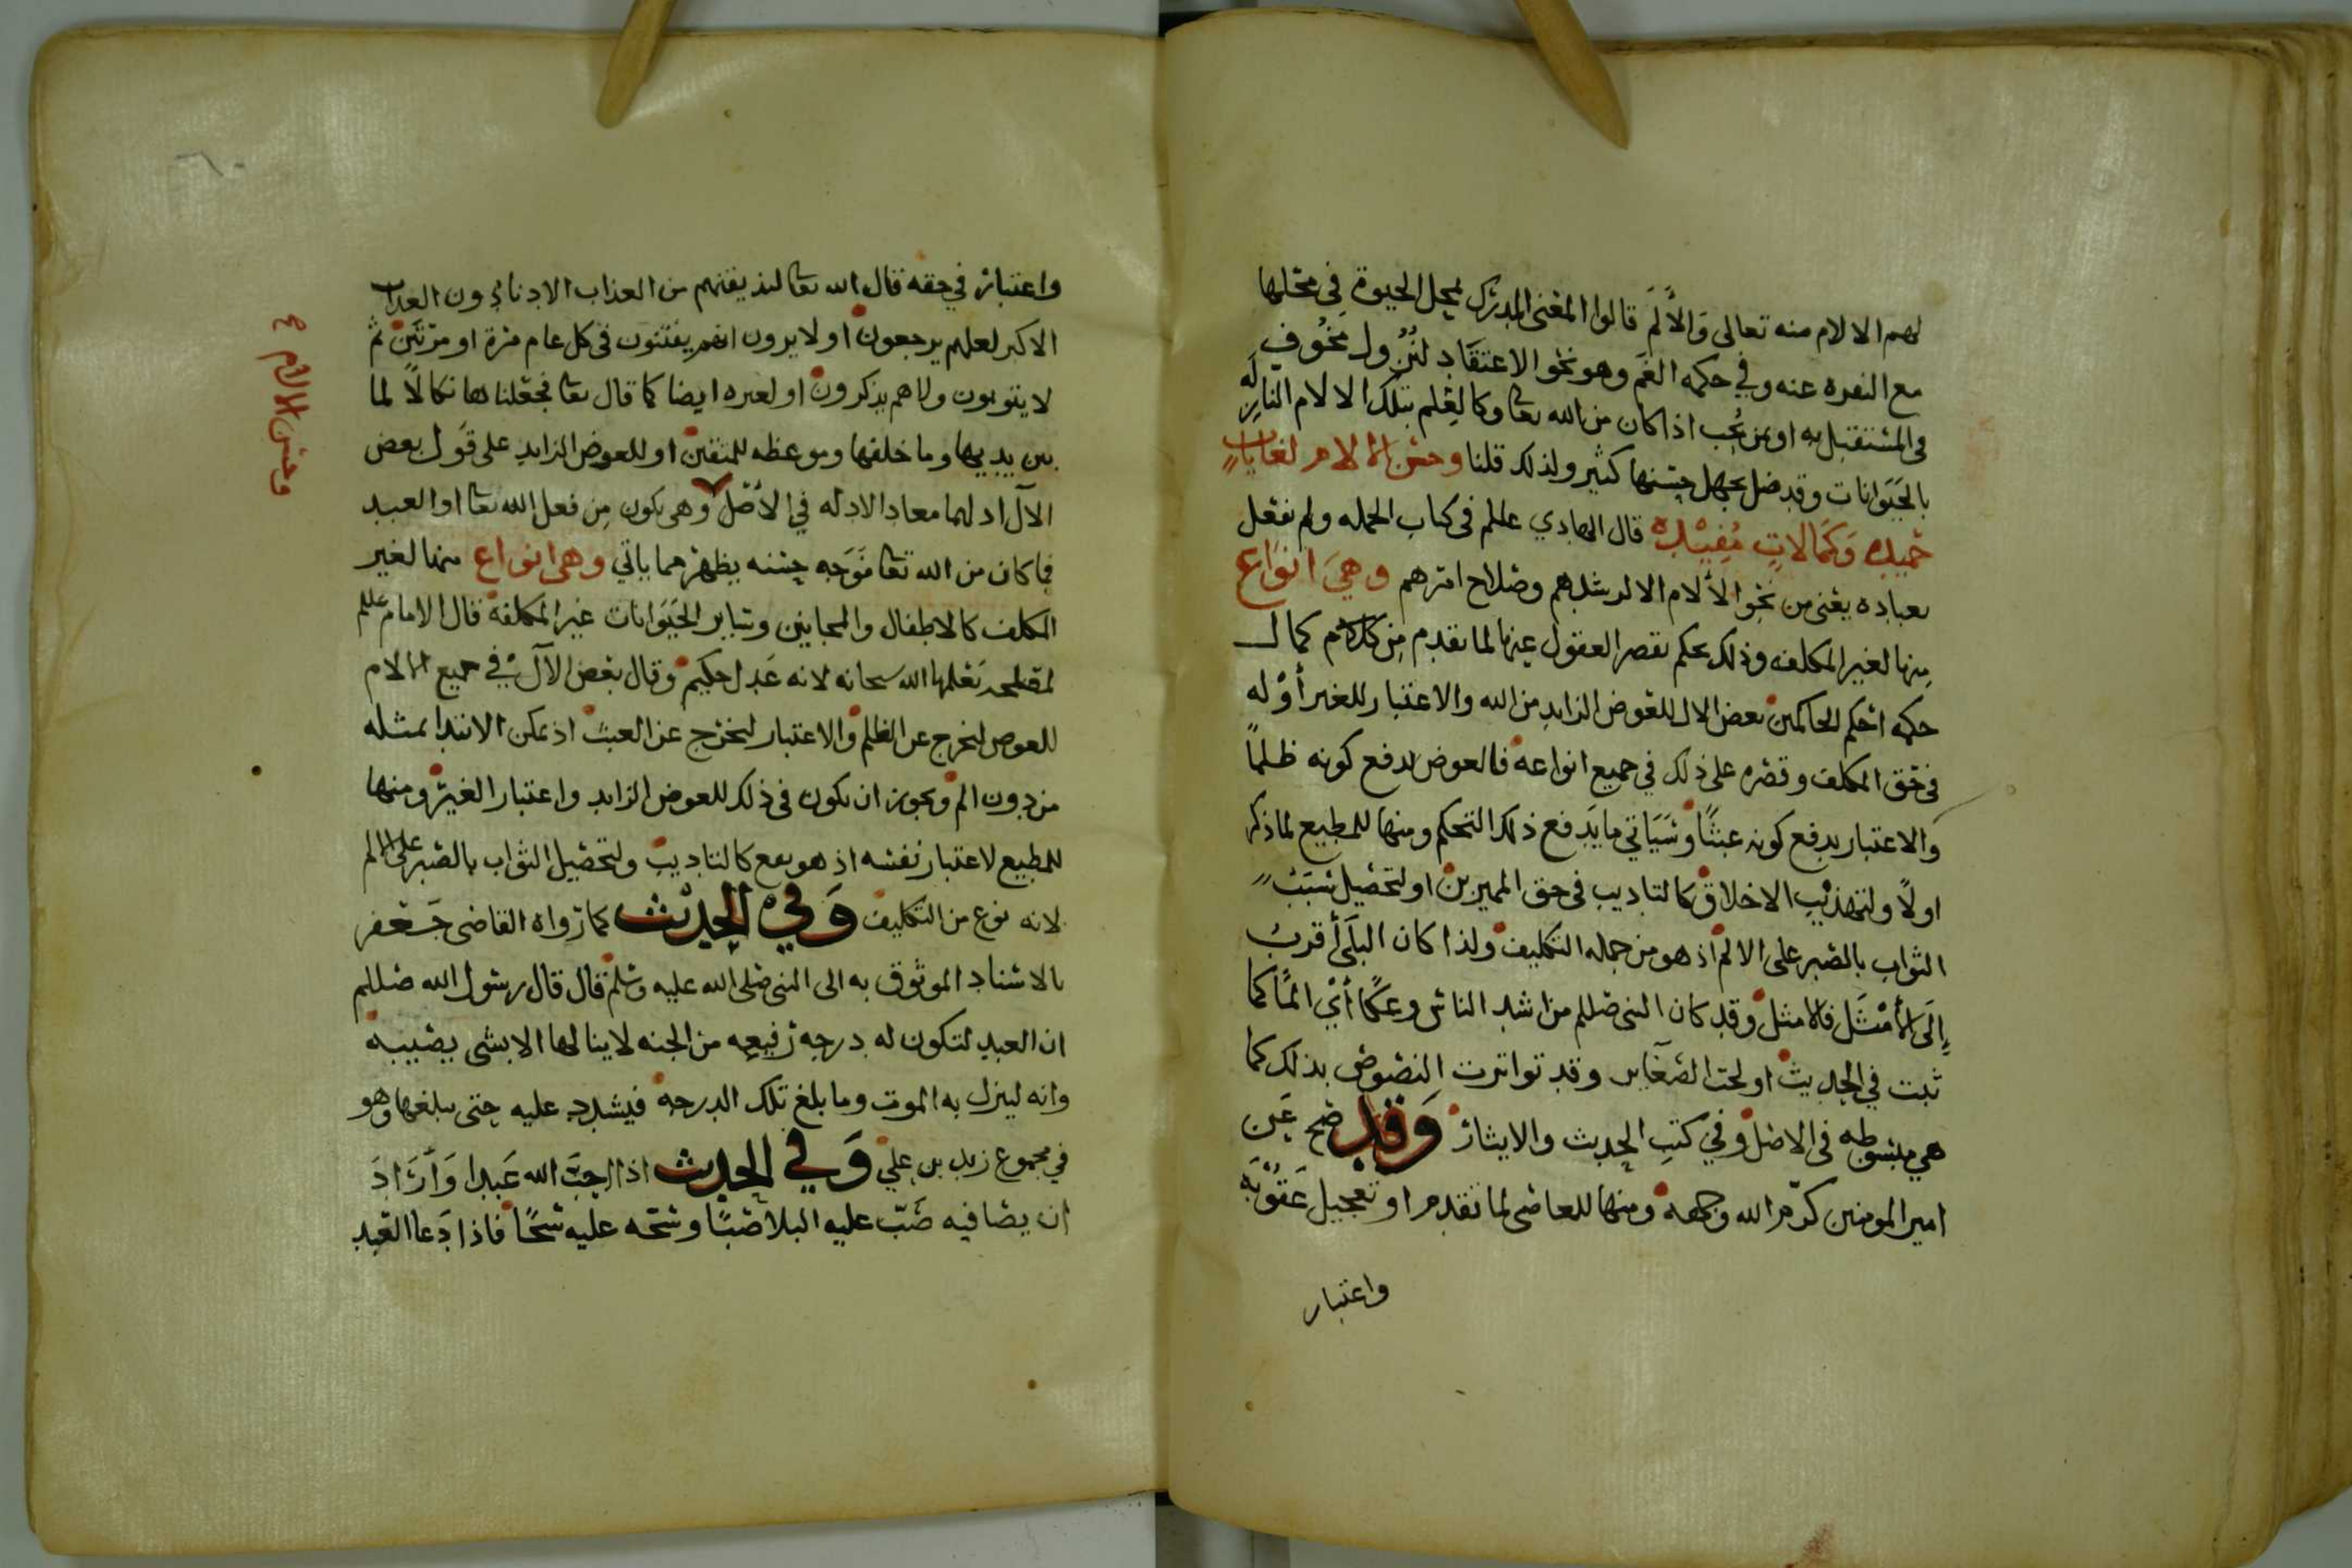 لهم الالام منه تعالى والألم قالوا المعنى المدرك بمحل الحيوة في محلها
مع النفره عنه وفي حكمه الغم وهو نحو الاعتقاد لنزول مخوف
في المستقبل به او بمن يحب اذا كان من الله تعا وكالعلم بتلك الالام النازله
بالحيوانات وقد ضل بجهل حسنها كثير ولذلك قلنا وحسن الالام لغايات
حميده وكمالات مفيده قال الهادي علم في كتاب الجمله ولم نفعل
بعباده يعني من نحو الألام الا لرشدهم وصلاح امرهم وهي انواع
منها لغير المكلفه وذلك بحكم تقصر العقول عنها لما تقدم من كلام كمال
حكمه احكم الحاكمين بعض الال للعوض الزايد من الله والاعتبار للغير أو له
في حق المكلف وقصره على ذلك في جميع انواعه فالعوض لدفع كونه ظلما
والاعتبار يدفع كونه عبثا وسياتي ما يدفع ذلك التحكم ومنها للمطيع لما ذكر
اولا ولتهذيب الاخلاق كالتاديب في حق المميزين او لتحصيل سبب
الثواب بالصبر على الالم اذ هو من جمله التكليف ولذا كان البلى أقرب
إلى الأمثل فالامثل وقد كان النبي صللم من اشد الناس وعكا أي الما كما
ثبت في الحديث او لحت الصغاير وقد تواترت النصوص بذلك كما
هي مبسوطه في الاصل وفي كتب الحديث والايثار وقد صح عن
امير المومنين كرم الله وجهه ومنها للعاصي لما تقدم او تعجيل عقوبه
واعتبار
واعتبار في حقه قال الله تعا لنذيقنهم من العذاب الادنا دون العذاب
الاكبر لعلهم يرجعون او لا يرون انهم يفتنون في كل عام مرة او مرتين ثم
لا يتوبون ولا هم يذكرون او لغيره ايضا كما قال تعا فجعلناها نكالا لما
بين يديها وما خلفها وموعظه للمتقين او للعوض الزايد على قول بعض
الآل اد لهما معاد الادله في الأصل وهي تكون من فعل الله تعا او العبد
فما كان من الله تعا فوجه حسنه يظهر مما ياتي وهي انواع منها لغير
المكلف كالاطفال والمجانين وساير الحيوانات غير المكلفه قال الامام علم
لمصلحه يعلمها الله سبحانه لانه عدل حكيم وقال بعض الآل في جميع الالام
للعوض لتخرج عن الظلم والاعتبار لتخرج عن العبث اذ يمكن الابتدا بمثله
من دون الم ويجوز ان يكون في ذلك للعوض الزايد واعتبار الغير ومنها
للمطيع لاعتبار نفسه اذ هو نفع كالتاديب ولتحصيل الثواب بالصبر على الالم
لانه نوع من التكليف وفي الحديث كما رواه القاضي جعفر
بالاسناد الموثوق به الى النبي صلى الله عليه وسلم قال قال رسول الله صللم
ان العبد لتكون له درجه رفيعه من الجنه لا ينالها الا بشي يصيبه
وانه لينزل به الموت وما بلغ تلك الدرجه فيشدد عليه حتى يبلغها وهو
في مجموع زيد بن علي وفي الحديث اذا احب الله عبدا وأراد
ان يصافيه صب عليه البلا صبا وسحه عليه سحا فاذا دعا العبد
وحسن الالام